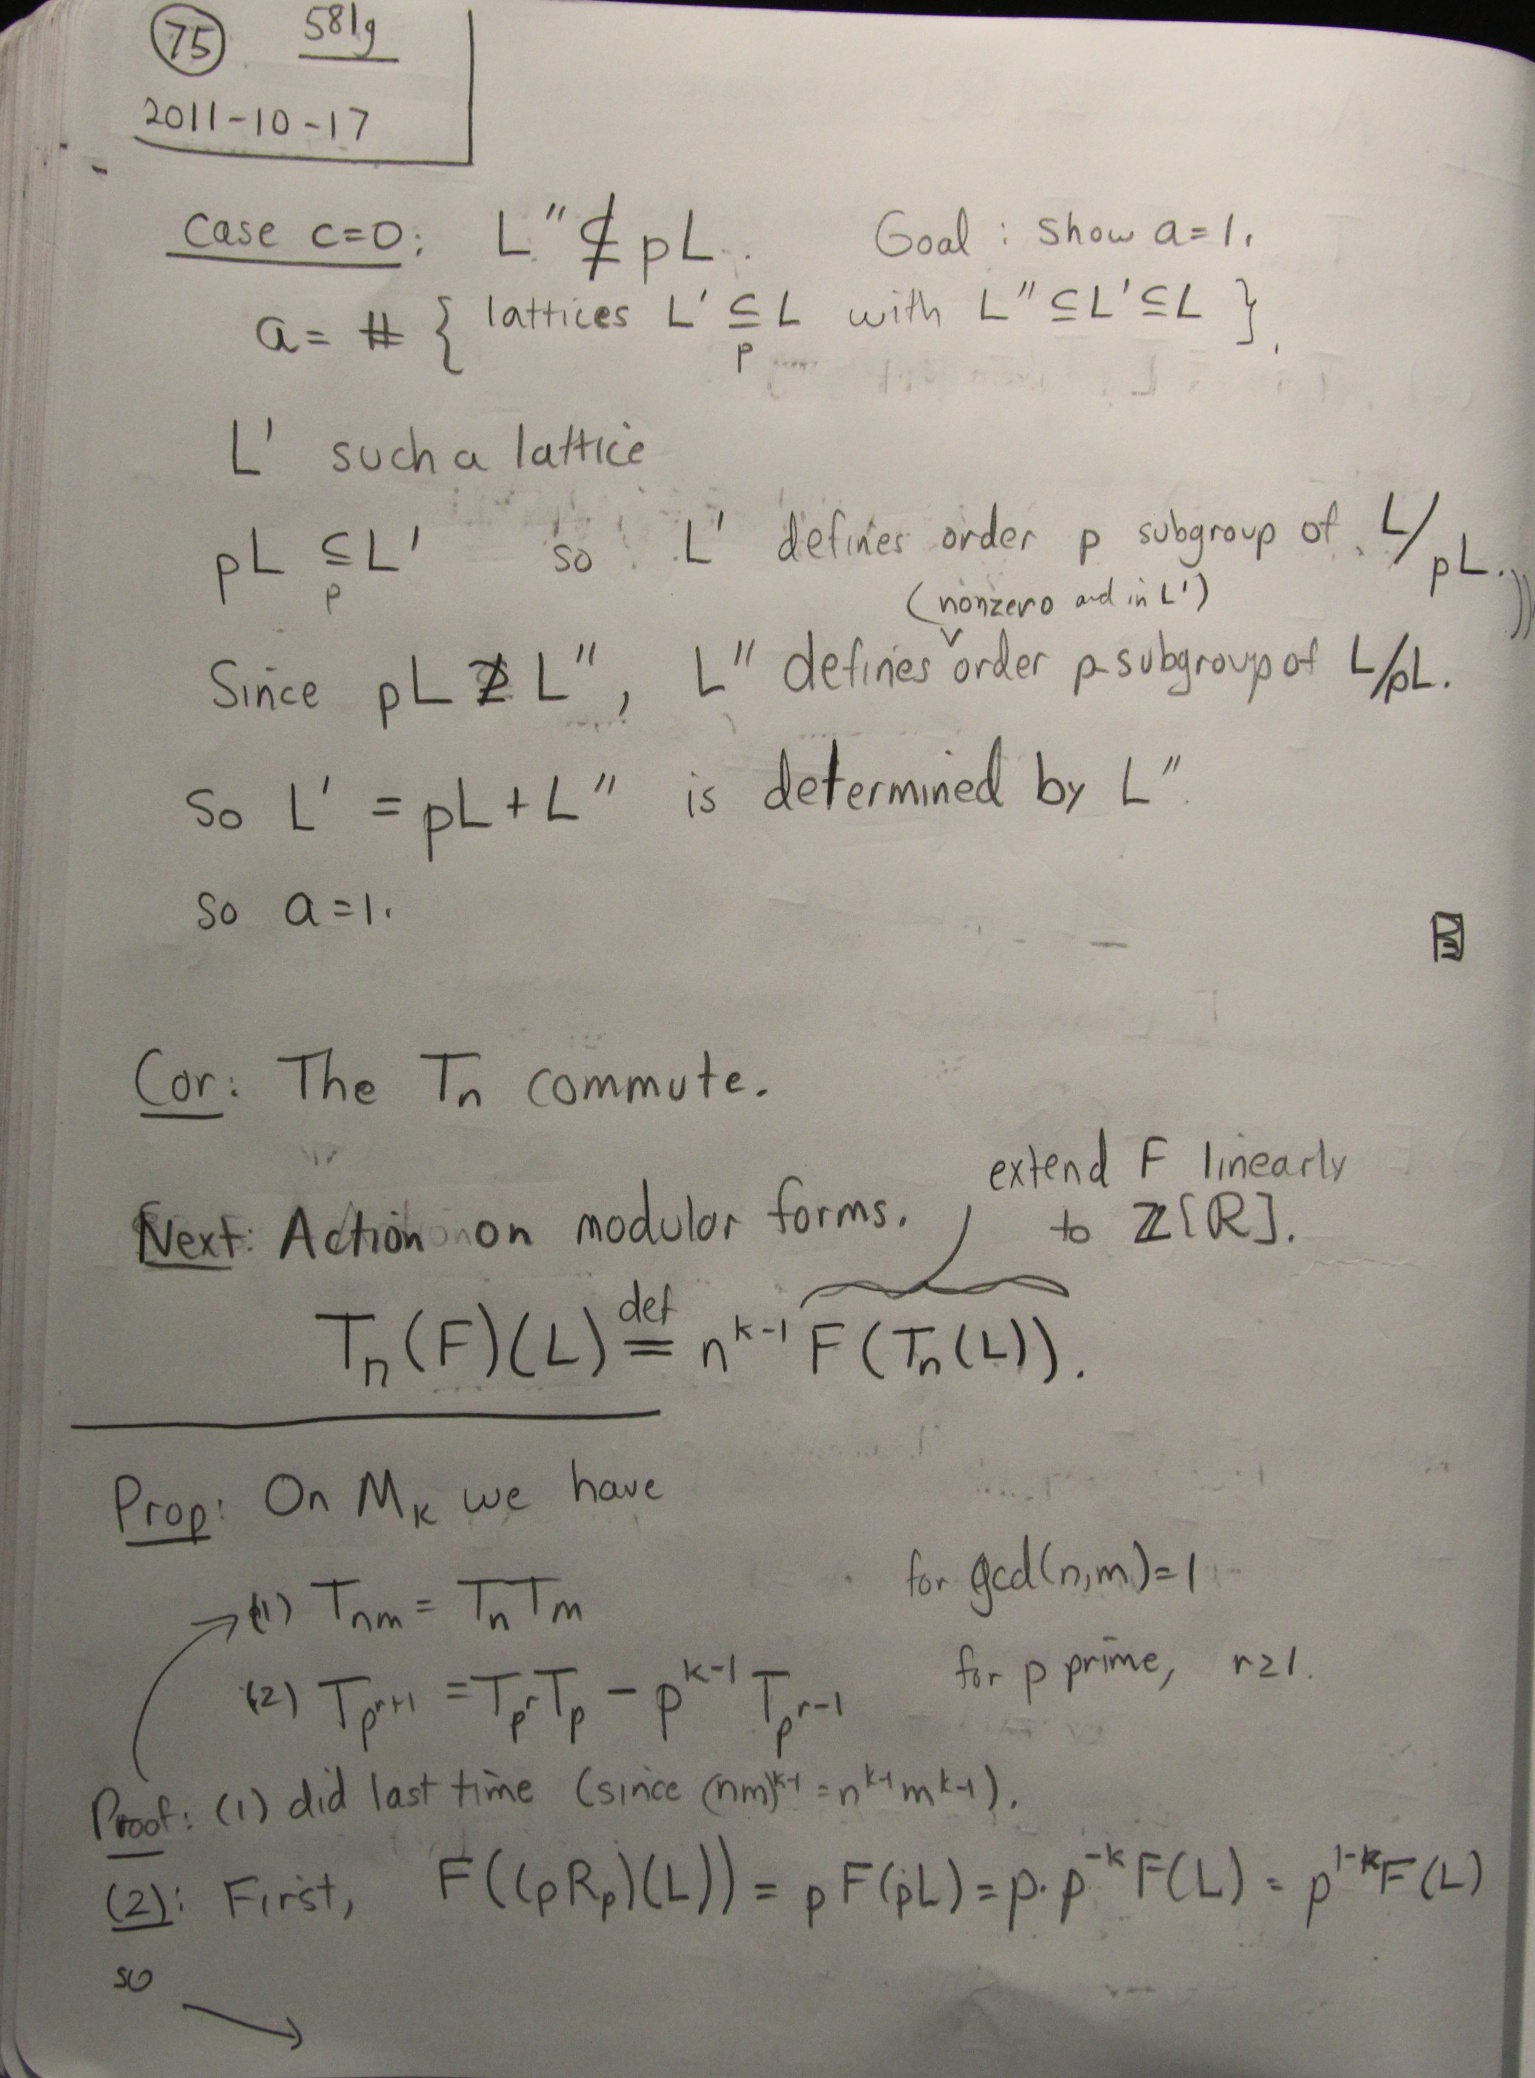 75 581g
2011-10-17
Case c=0: L″ ⊈ pL. Goal: show a=1.
a = # { lattices L′ ⊆ L with L″ ⊆ L′ ⊆ L }.
p
L′ such a lattice
pL ⊆ L′ so L′ defines order p subgroup of L/pL.
p
(nonzero and in L′)
Since pL ⊉ L″, L″ defines order p subgroup of L/pL.
So L′ = pL + L″ is determined by L″.
so a=1.
Cor: The Tₙ commute.
extend F linearly
Next: Action on modular forms. to ℤ[R].
Tₙ(F)(L) def= n^{k-1} F(Tₙ(L)).
Prop: On M_k we have
(1) T_{nm} = T_n T_m for gcd(n,m)=1
(2) T_{p^{r+1}} = T_{p^r} T_p − p^{k-1} T_{p^{r-1}} for p prime, r≥1.
Proof: (1) did last time (since (nm)^{k-1} = n^{k-1} m^{k-1}).
(2): First, F((pR_p)(L)) = pF(pL) = p·p^{-k}F(L) = p^{1-k}F(L)
so →